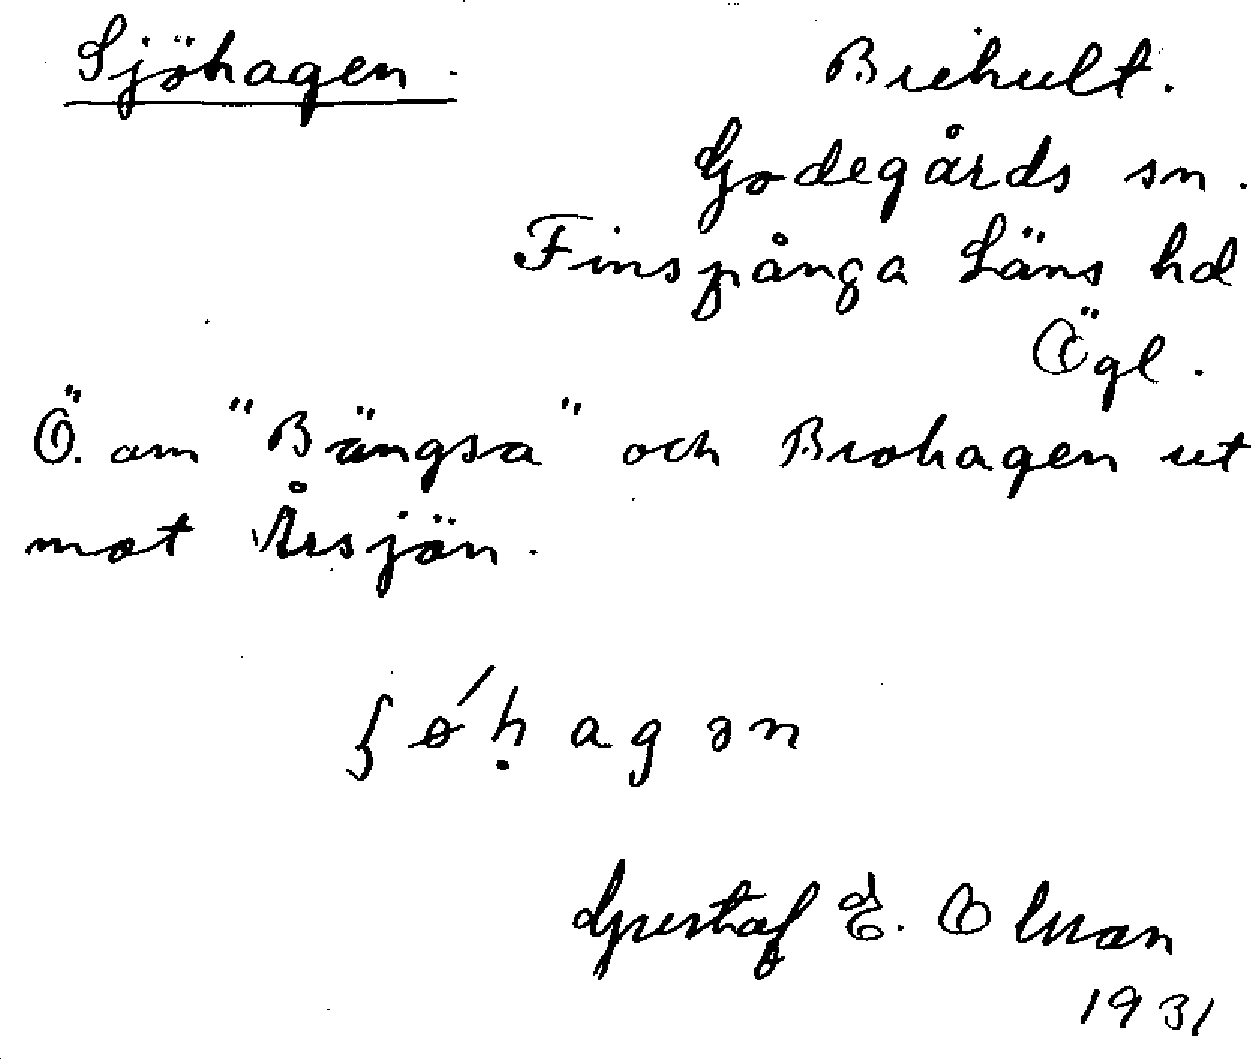 Sjöhagen.
Brehult.
Godegårds sn.
Finspånga Läns hd
Ögl.
Ö. om "Bängsa" och Brohagen ut
mot Årsjön.
Gustaf E.
1931